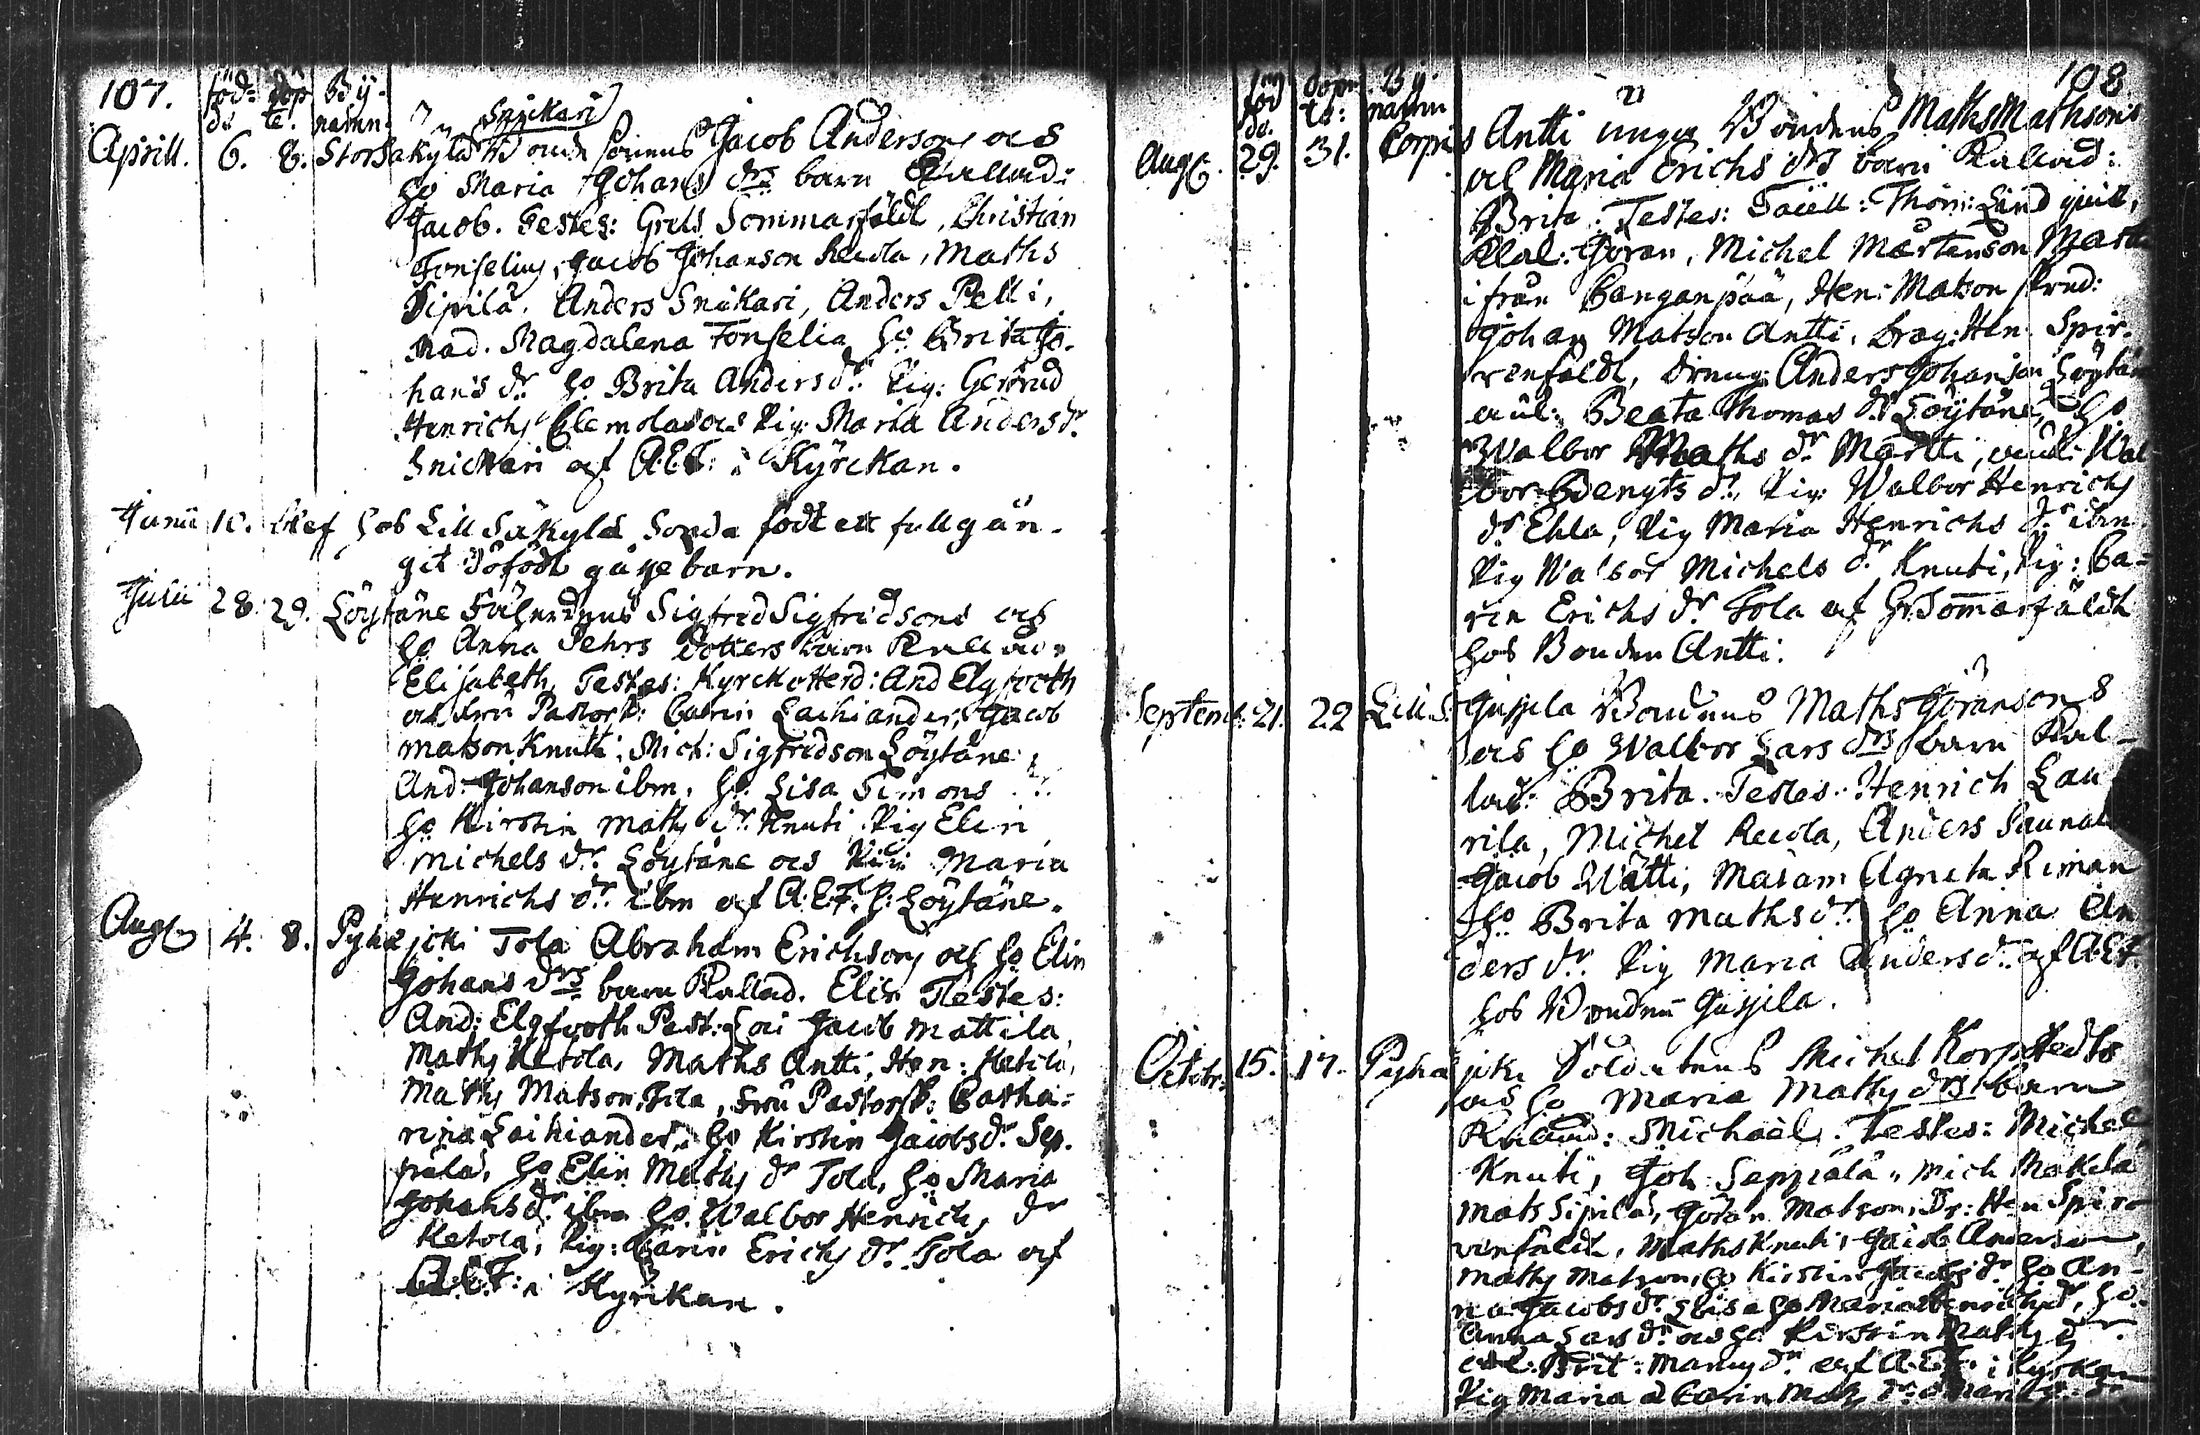 107.
föd= döp By=
de te. namn
Snickari
Aprill. 6. 8. Storsäkylä Bonde sonens Jacob Andersons och
ho Maria Johans drs barn Kallad:
Jacob. Testes: Grels Sommarfäldt, Christian
Fonselius, Jacob Johanson Recola, Maths
Sipilä. Anders Snickari, Anders Pelli,
Mad. Magdalena Fonselia ho Brita Jo-
hans dr. ho Brita Anders dr. Pig: Gertrud
Henrichs Elemola och Pig: Maria Anders dr.
Snickari af A.E.F: i Kyrckan.
Junii 10. blef hos Lill Säkylä Sonda födt ett fullgån-
git döfödt gåssebarn.
Julii 28. 29. Löytäne Sigfred Sigfredsons och
ho Anna Pehrs dotters barn Kallad:
Elisabeth, Testes: Kyrckoherd: And Elgfooth
och Fru Pastorsk: Catrin Laihiander, Jacob
Matson Knuti, Mich: Sigfredson Löytäne
And: Johanson ibm, ho: Lisa Simons dr.
ho Kirstin Maths dr. Knuti Pig Elin
Michels dr. Löytäne och Pig: Maria
Henrichs dr. ibm af A.E.F. h: Löytäne.
Aug 4. 8. Pyhäjoki Tola Abraham Erichsons och ho Elin
Johans drs barn Kallad. Elin Testes:
And: Elgfooth Past: Loci Jacob Mattila,
Maths Ketola, Maths Antti, Hen: Ketola,
Maths Matson Tola, Fru Pastorsk: Catha=
rina Laihiander, ho Kirstin Jacobs dr. Sep-
pälä, ho Elin Maths dr Tola, ho Maria
Johans dr. ibm ho. Walbor Henrichs dr
Ketola, Pig: Carin Erichs dr. Tola af
A.E.F: i Kyrckan.
108
föd döp By.
de. te: namn
Aug 29. 31. Corpis Antti unga Bondens Maths Mathsons
och Maria Erichs drs barn Kallad:
Brita. Testes: Thom: Lindquist,
Göran, Michel Mårtenson
ifrån Canganpää, Hen: Matson
Johan Matson Antti. Drag: Hen: Spir-
renfäldt, Dreng: Anders Johanson Löytäne
Beata Thomas dr. Löytäne, ho
Walbor Maths dr Martti, Wal-
bor Bengts dr, Pig: Walbor Henrichs
dr Ehla, Pig Maria Henrichs dr. ibm
Pig Walbor Michels dr Knuti, Pig: Ca=
rin Erichs dr Tola af Gr. Somarfäldt
hos Bonden Antti.
Septemb: 21. 22 Lill S: Jussila Bondens Maths Göransons
och ho Walbor Lars drs barn Kal-
lad: Brita. Testes. Henrich Lau
rila, Michel Recola, Anders
Jacob Wätti, Madam Agneta
ho. Brita Maths dr. ho Anna An
ders dr. Pig Maria Anders dr. af A.E.F.
hos Bonden Jussila.
Octobr: 15. 17. Pyhäjoki Soldatens Michel Korpstedts
och ho Maria Maths drs barn
Kallad: Michaël. Testes: Michel
Knuti, Joh Seppälä, Mich Mäkilä
Mats Sipilä, Göran Matson, Dr: Hen Spirr-
renfäldt, Maths Knuti, Jacob Anderson,
Maths Matson, ho Kirstin Jacobs dr ho An-
na Jacobs dr. ho Maria Henrichs dr, ho.
Anna Lars dr. och ho Kirstin Maths dr.
Brit: af A.E.F. i Kyrckan
Pig Maria Carin Maths dr.